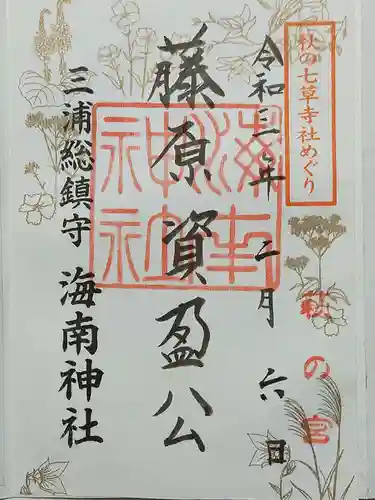 秋の七草寺社めぐり
令和三年二月六日
萩の宮
藤原資盈公
海南神社
三浦総鎮守 海南神社